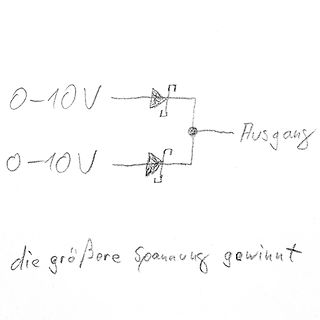 0-10V
Ausgang
0-10V
die größere Spannung gewinnt